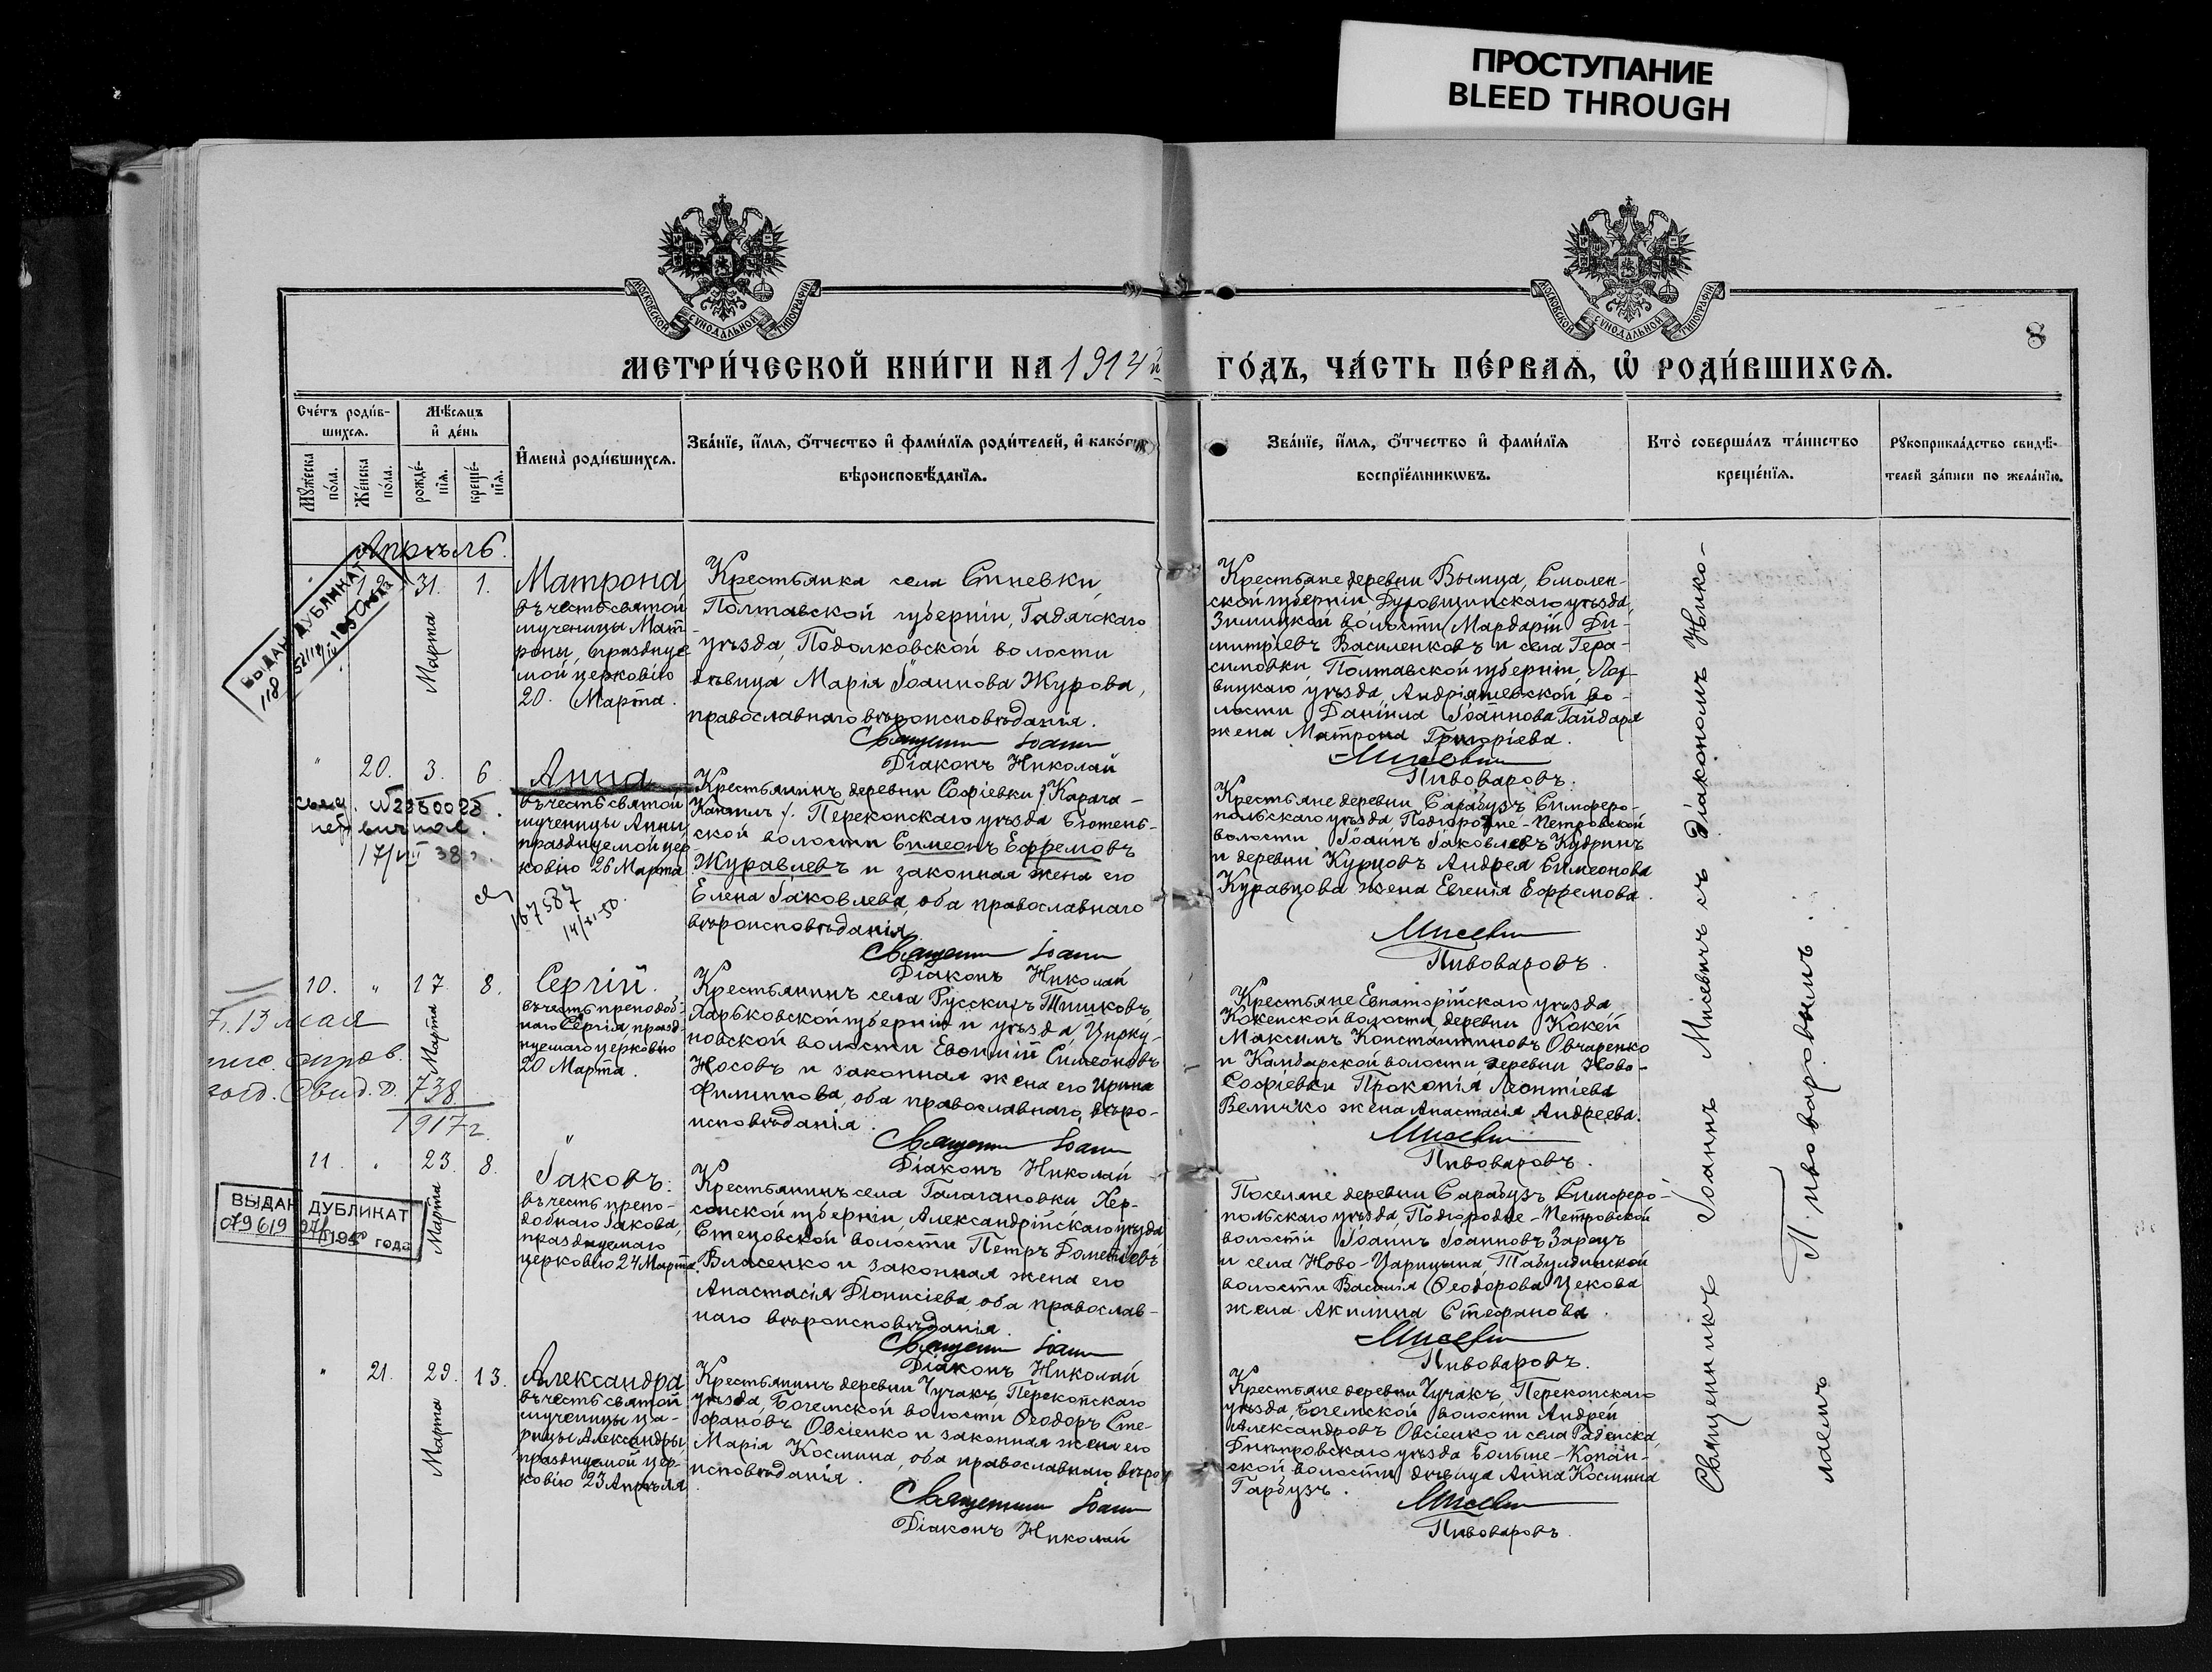 ПРОСТУПАНИЕ
BLEED THROUGH
МОСКОВСКОЙ СѴНОДАЛЬНОЙ ТИПОГРАФІИ
МОСКОВСКОЙ СѴНОДАЛЬНОЙ ТИПОГРАФІИ
8
МЕТРИ́ЧЕСКОЙ КНИ́ГИ НА 1914й ГО́ДЪ, ЧА́СТЬ ПЕ́РВАѦ, Ѡ҆ РОДИ́ВШИХСѦ.
Сче́тъ роди́в-
шихсѧ.
Мꙋ́жеска
по́ла.
Же́нска
по́ла.
Мѣ́сѧцъ
и҆ де́нь
рожде́-
нїѧ.
креще́-
нїѧ.
И҆мена̀ роди́вшихсѧ.
Зва́нїе, и҆́мѧ, ѻ҆́тчество и҆ фами́лїѧ роди́телей, и҆ како́гѡ
вѣроисповѣ́данїѧ.
Зва́нїе, и҆́мѧ, ѻ҆́тчество и҆ фами́лїѧ
воспрїе́мникѡвъ.
Кто̀ соверша́лъ та́инство
креще́нїѧ.
Рꙋкоприкла́дство свидѣ́-
телей за́писи по жела́нїю.
Апрѣль.
ВЫДАН ДУБЛИКАТ
31. 1.
Марта
Матрона
въ честь святой
мученицы Мат-
роны, празднуе
мой церковію
20. Марта.
Крестьянка села Синевки,
Полтавской губерніи, Гадячскаго
уѣзда, Подолковской волости
дѣвица Марія Іоаннова Журова,
православнаго вѣроисповѣданія.
Священникъ Іоаннъ
Діаконъ Николай
Крестьяне деревни Вымца, Смолен-
ской губерніи Духовщинскаго уѣзда,
Зимицкой волости Мардарій Ди-
митріевъ Василенковъ и села Гера-
симовки, Полтавской губерніи, Лох-
вицкаго уѣзда, Андріяшевской во-
лости Даніила Іоаннова Гайдара
жена Матрона Григоріева.
Мисевичъ
Пивоваровъ.
" 20. 3. 6
№2350025.
17/VII 38
167587
14/XI-50.
Анна
въ честь святой
мученицы Анны,
празднуемой цер
ковію 26 Марта
Крестьянинъ деревни Софіевки /Карача-
Кангилъ/. Перекопскаго уѣзда Бютень-
ской волости Симеонъ Ефремовъ
Журавлевъ и законная жена его
Елена Іаковлева, оба православнаго
вѣроисповѣданія.
Священникъ Іоаннъ
Діаконъ Николай
Крестьяне деревни Сарабузъ Симферо-
польскаго уѣзда Подгородне-Петровской
волости Іоаннъ Іаковлевъ Кудринъ
и деревни Курцовъ Андрея Симеонова
Куравцова жена Евгенія Ефремова.
Мисевичъ
Пивоваровъ.
10. " 17 8.
Марта
13 мая
738
1917 г.
Сергій.
въ честь преподоб-
наго Сергія, празд-
нуемаго церковію
20 Марта.
Крестьянинъ села Русскихъ Тишковъ,
Харьковской губерніи и уѣзда, Цирку-
новской волости Евѳимій Симеоновъ
Носовъ и законная жена его Ирина
Филиппова, оба православнаго вѣро-
исповѣданія.
Священникъ Іоаннъ
Діаконъ Николай
Крестьяне Евпаторійскаго уѣзда
Кокейской волости, деревни Кокей
Максимъ Константиновъ Овчаренко
и Камбарской волости, деревни Ново-
Софіевки Прокопія Леонтіева
Величко жена Анастасія Андреева.
Мисевичъ
Пивоваровъ.
11. " 23. 8.
Марта
ВЫДАН ДУБЛИКАТ
079619 195 года
Іаковъ.
въ честь препо-
добнаго Іакова,
празднуемаго
церковію 24 Марта.
Крестьянинъ села Галагановки, Хер-
сонской губерніи, Александрійскаго уѣзда
Стецовской волости Петръ Дометіевъ
Власенко и законная жена его
Анастасія Діонисіева, оба православ-
наго вѣроисповѣданія.
Священникъ Іоаннъ
Діаконъ Николай
Поселяне деревни Сарабузъ Симферо-
польскаго уѣзда, Подгородне-Петровской
волости Іоаннъ Іоанновъ Зарецъ
и села Ново-Царицына, Табулдинской
волости Василія Ѳеодорова Цекова
жена Акилина Стефанова.
Мисевичъ
Пивоваровъ.
" 21. 29. 13.
Марта
Александра
въ честь святой
мученицы ца-
рицы Александры,
празднуемой цер-
ковію 23 Апрѣля
Крестьянинъ деревни Чучакъ, Перекопскаго
уѣзда, Богемской волости Ѳеодоръ Сте-
фановъ Овсіенко и законная жена его
Марія Космина, оба православнаго вѣро-
исповѣданія.
Священникъ Іоаннъ
Діаконъ Николай
Крестьяне деревни Чучакъ, Перекопскаго
уѣзда, Богемской волости Андрей
Александровъ Овсіенко и села Раденска,
Днѣпровскаго уѣзда Больше-Копан-
ской волости дѣвица Анна Космина
Гарбузъ.
Мисевичъ
Пивоваровъ.
Священникъ Іоаннъ Мисевичъ съ діакономъ Нико-
лаемъ Пивоваровымъ.